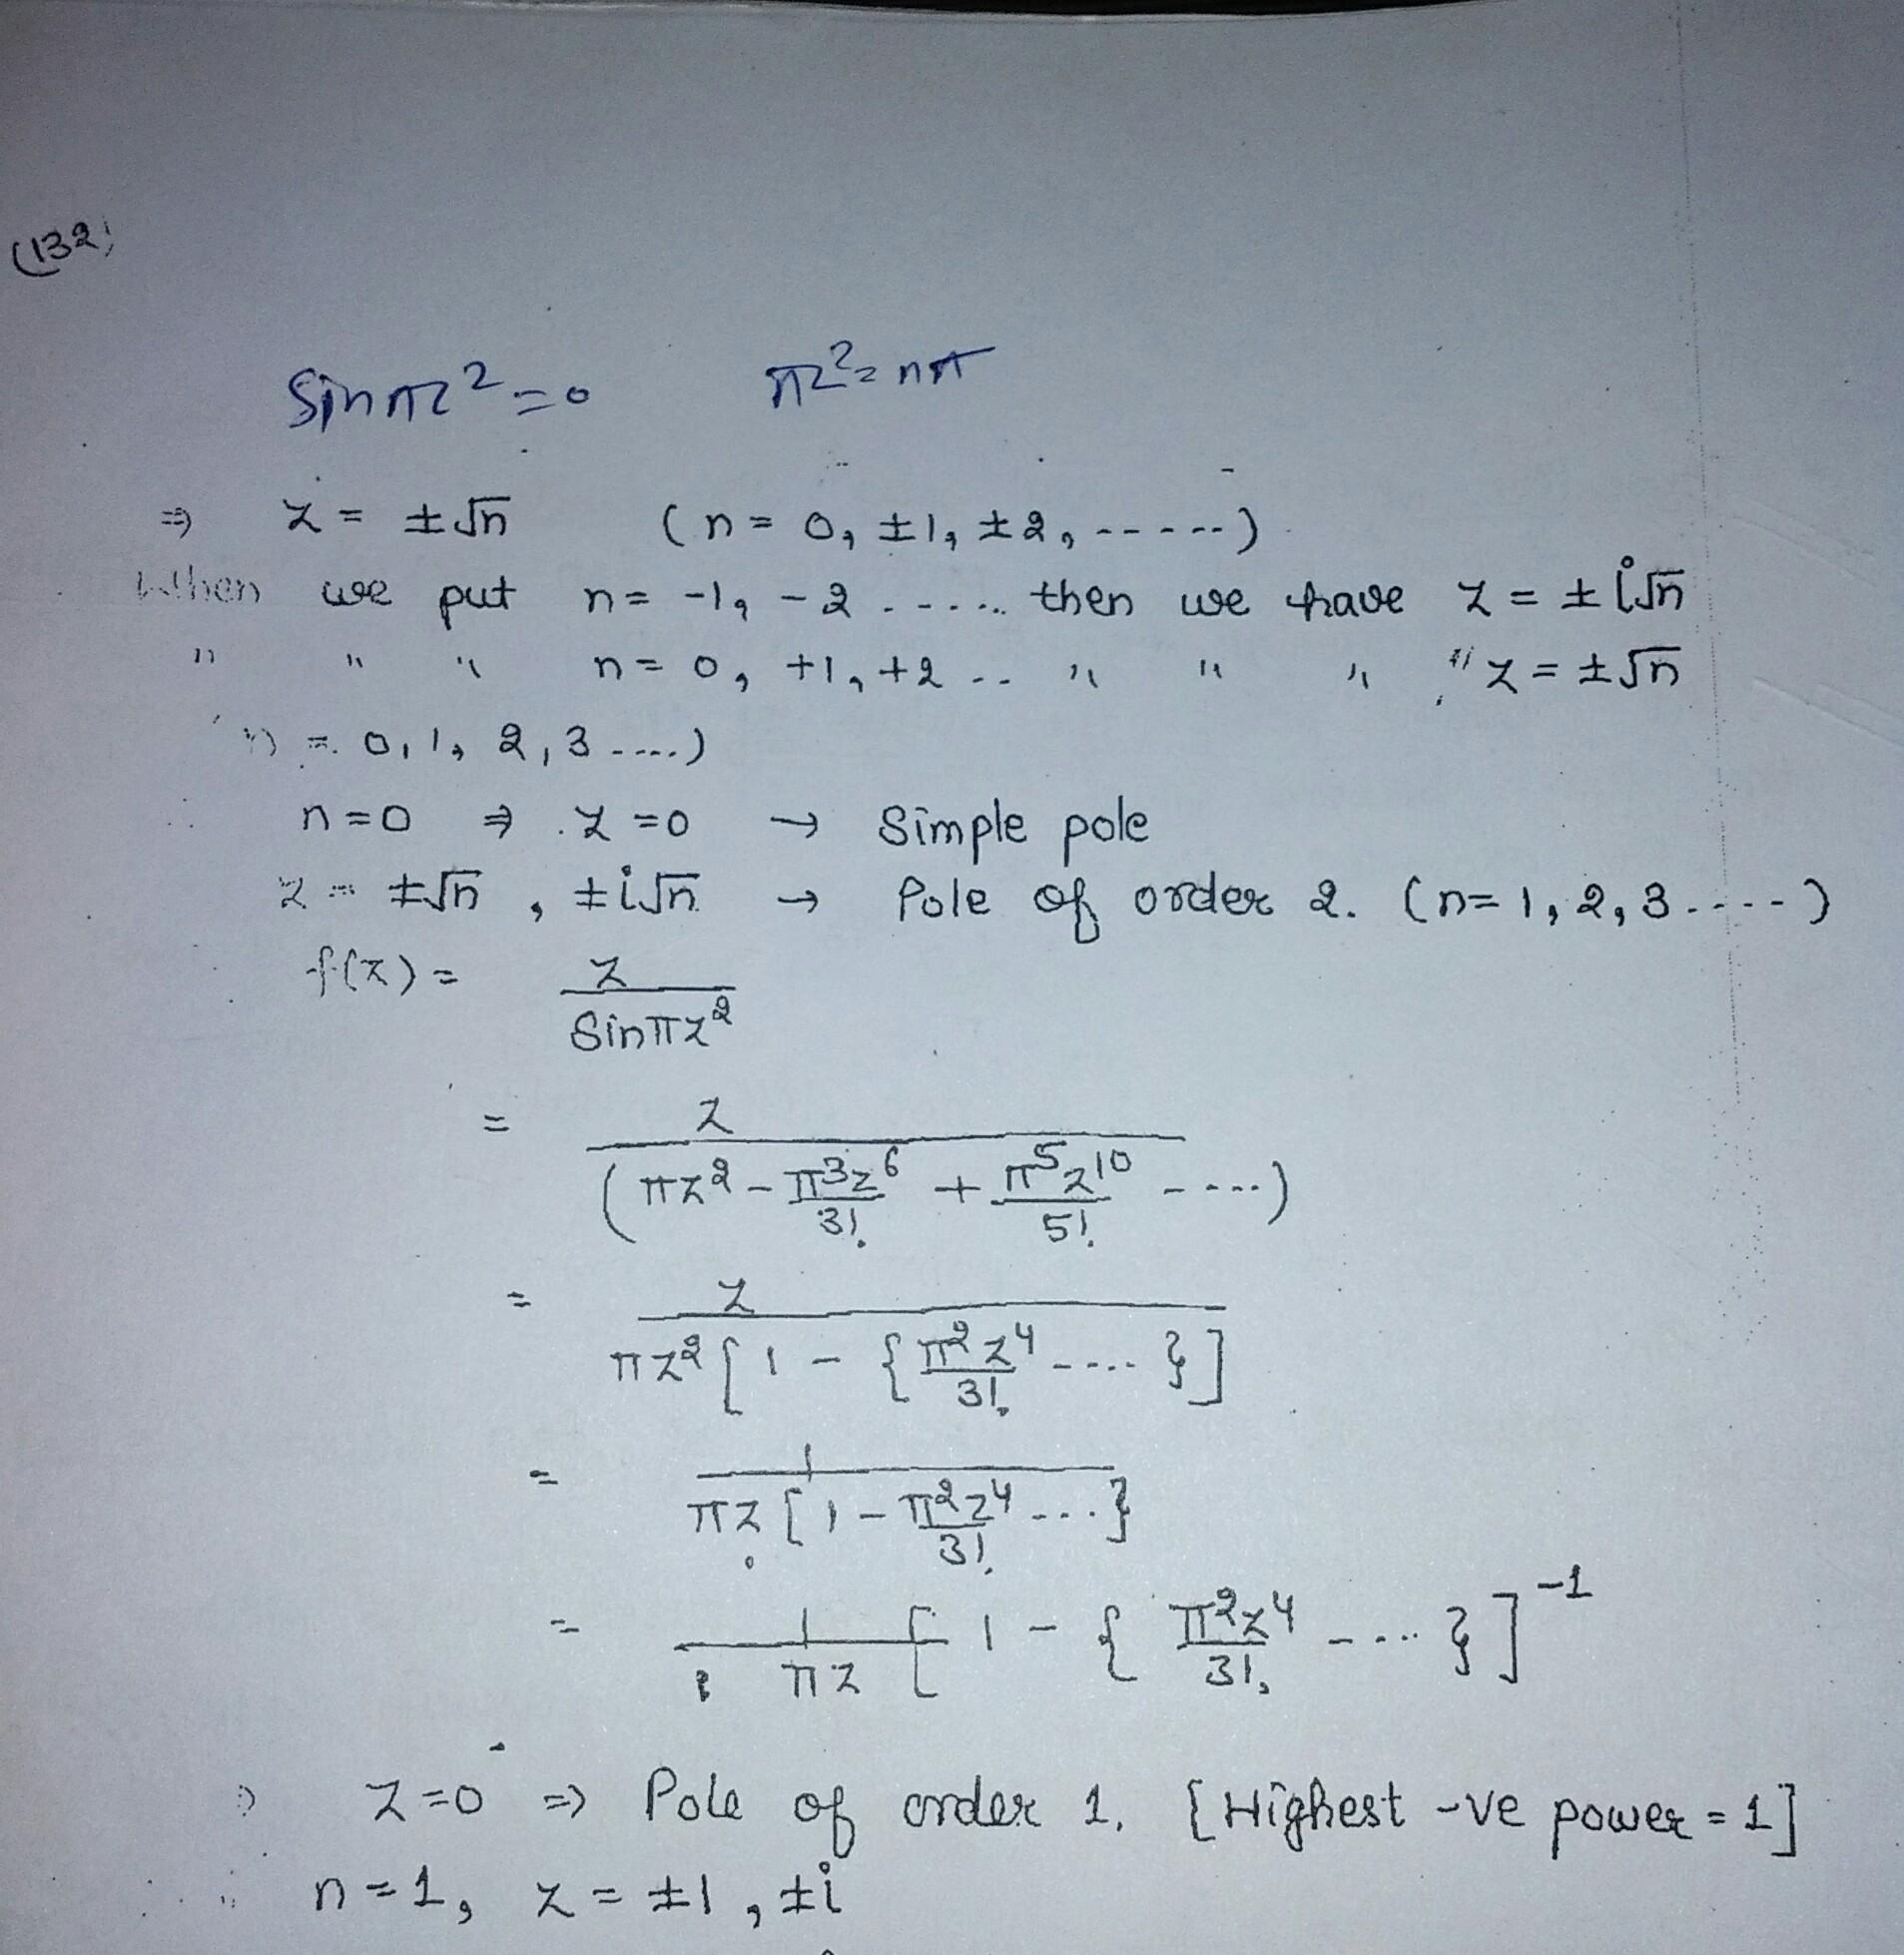 (132)
Sinπz²=0 πz²=nπ
⇒ z = ±√n (n = 0, ±1, ±2, -----)
When we put n= -1, -2 ...... then we have z = ±i√n
" " " n=0, +1, +2 .. " " " " z = ±√n
n = 0, 1, 2, 3 ....)
n=0 ⇒ z=0 → Simple pole
z = ±√n, ±i√n → Pole of order 2. (n= 1, 2, 3.....)
f(z) = z / Sinπz²
= z / (πz² - π³z⁶/3! + π⁵z¹⁰/5! -....)
= z / πz² [1 - {π²z⁴/3! .... }]
= 1 / πz [1 - π²z⁴/3! ...}
= 1/πz [1 - { π²z⁴/3! .... }]⁻¹
⇒ z=0 ⇒ Pole of order 1. [Highest -ve power = 1]
n=1, z = ±1, ±i